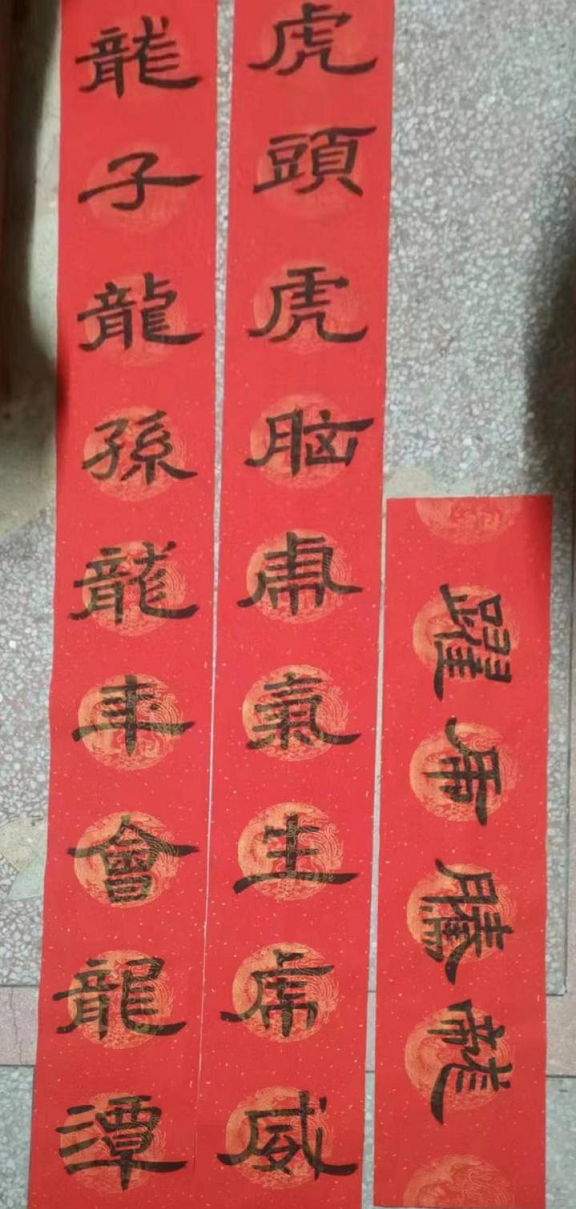 虎頭虎脑虎氣生虎威
龍子龍孫龍年會龍潭
龍騰虎躍